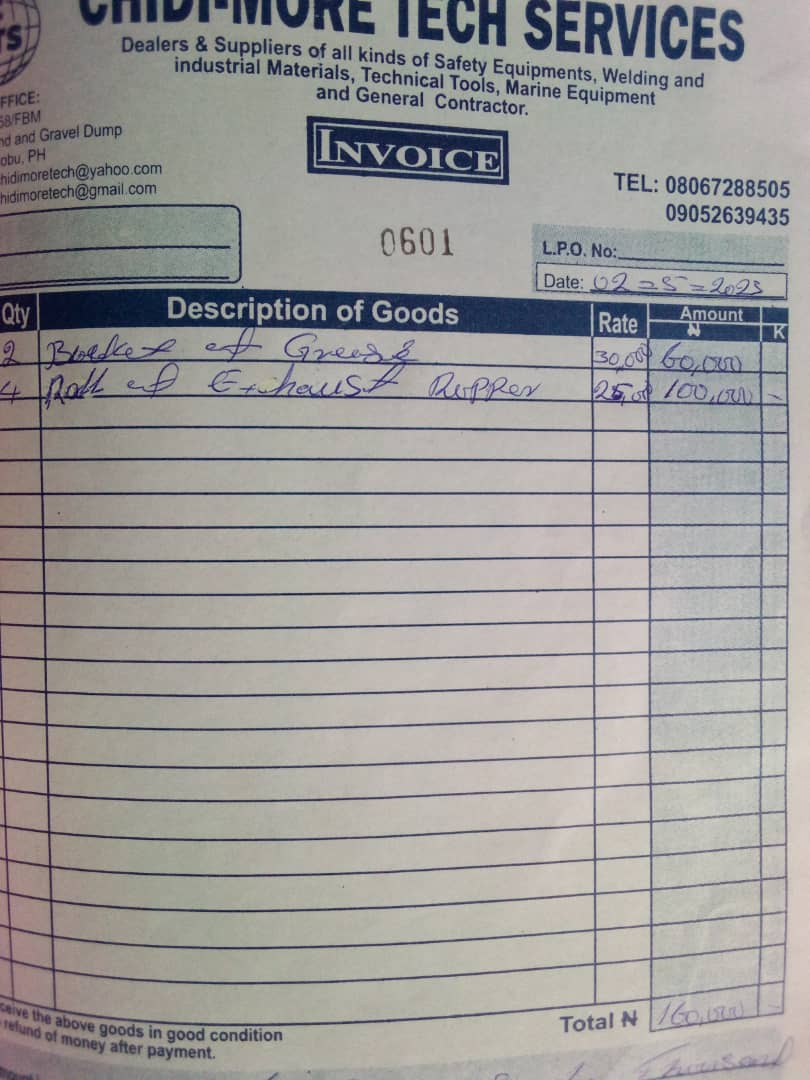 CHIDI-MORE TECH SERVICES
TS
Dealers & Suppliers of all kinds of Safety Equipments, Welding and
industrial Materials, Technical Tools, Marine Equipment
and General Contractor.
FFICE:
58/FBM
nd and Gravel Dump
obu, PH
hidimoretech@yahoo.com
hidimoretech@gmail.com
INVOICE
TEL: 08067288505
09052639435
0601
L.P.O. No:
Date: 02=5=2023
Qty Description of Goods Rate Amount
₦ K
2 Bucket of Grease 30,000 60,000
4 Roll of Exhaust Rupper 25,000 100,000 -
Total ₦ 160,000 -
ceive the above goods in good condition
refund of money after payment.
Thousand